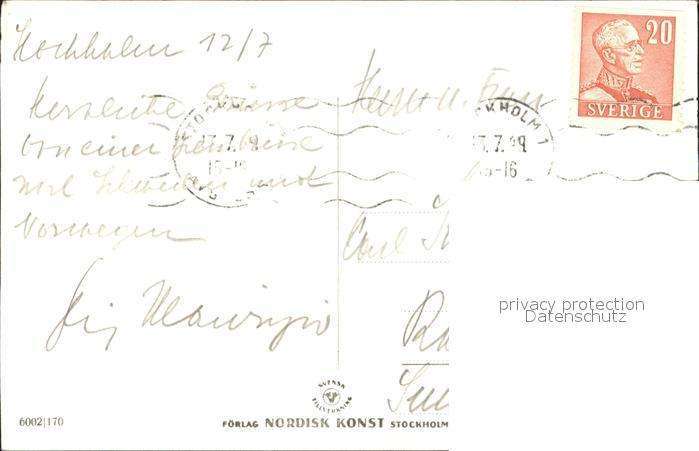 Stockholm 12/7
Herzliche Grüsse
von einer Ferienreise
nach Schweden und
Norwegen
Herr u. Frau
Carl
privacy protection
Datenschutz
20
SVERIGE
STOCKHOLM 1
17.7.49
15-16
SVENSK
TILLVERKNING
6002|170
FÖRLAG NORDISK KONST STOCKHOLM